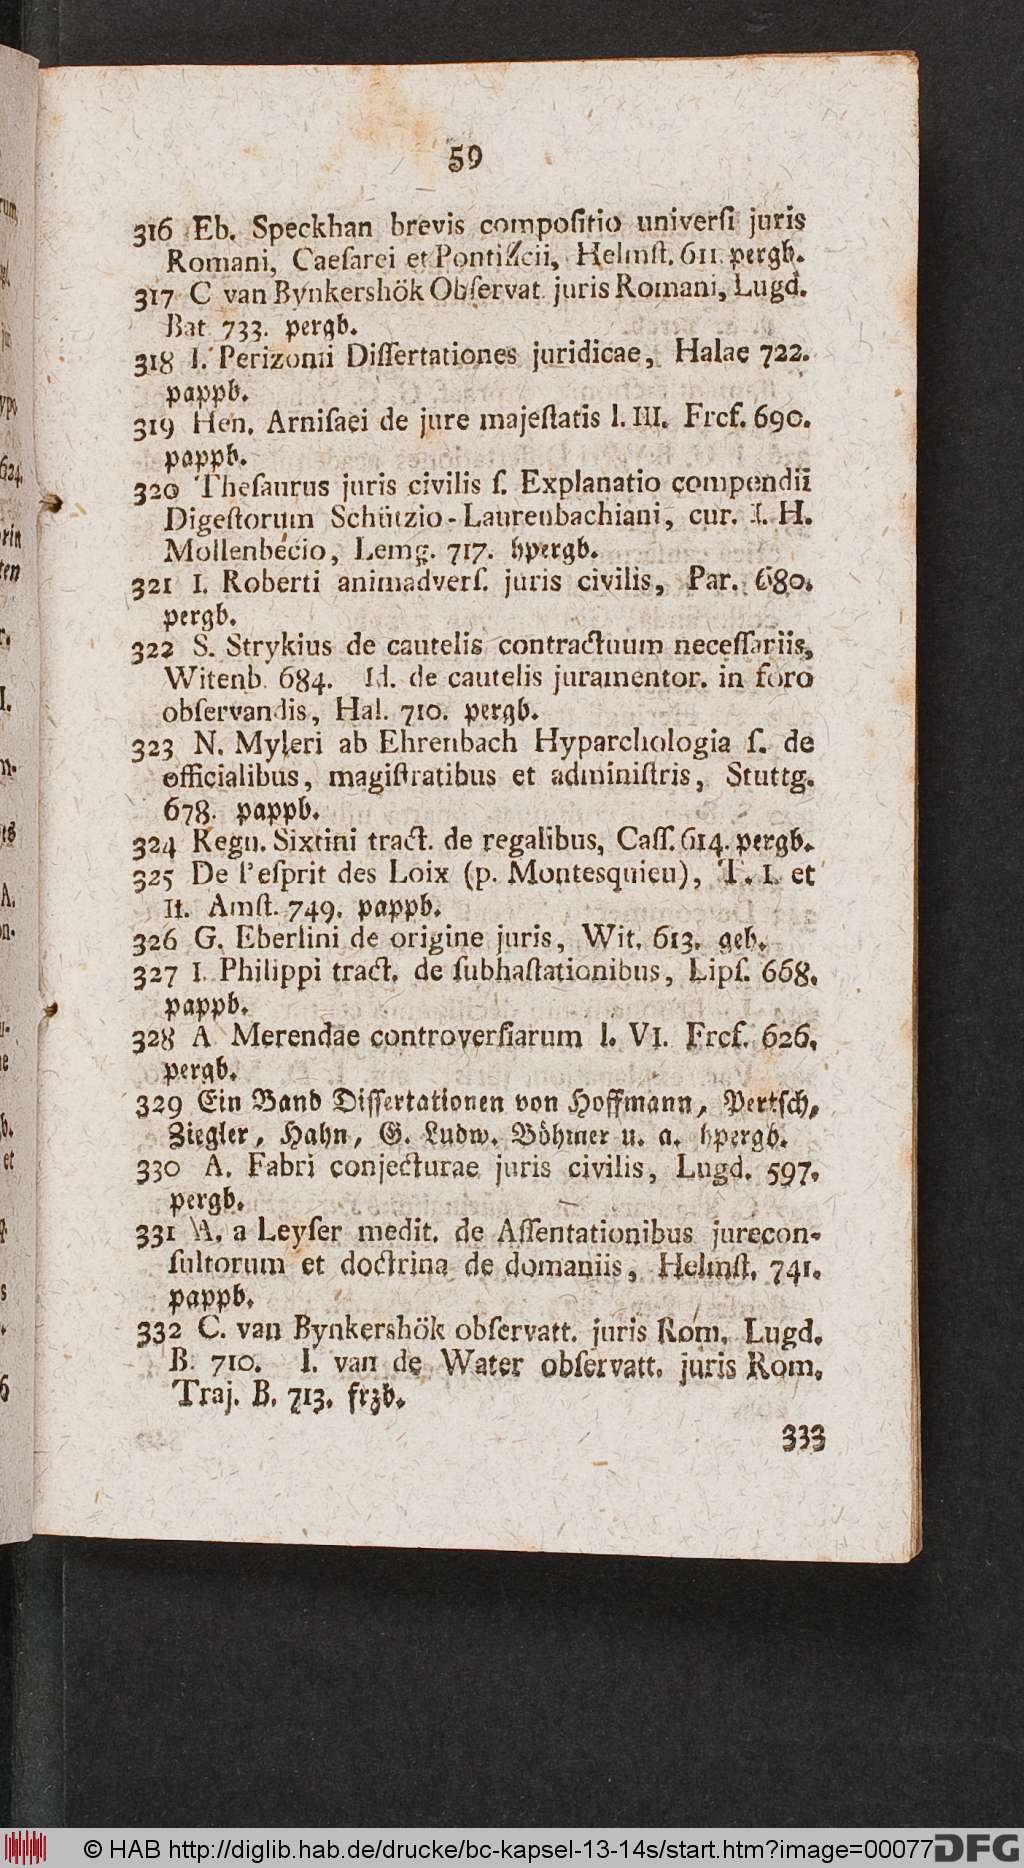 59
316 Eb. Speckhan brevis compoſitio univerſi juris
Romani, Caeſarei et Pontificii, Helmſt. 611. pergb.
317 C van Bynkershök Obſervat. juris Romani, Lugd.
Bat 733. pergb.
318 I. Perizonii Diſſertationes juridicae, Halae 722.
pappb.
319 Hen. Arniſaei de jure majeſtatis l. III. Frcf. 690.
pappb.
320 Theſaurus juris civilis ſ. Explanatio compendii
Digeſtorum Schützio-Laurenbachiani, cur. I. H.
Mollenbecio, Lemg. 717. hpergb.
321 I. Roberti animadverſ. juris civilis, Par. 680.
pergb.
322 S. Strykius de cautelis contractuum neceſſariis,
Witenb. 684. Id. de cautelis juramentor. in foro
obſervandis, Hal. 710. pergb.
323 N. Myleri ab Ehrenbach Hyparchologia ſ. de
officialibus, magiſtratibus et adminiſtris, Stuttg.
678. pappb.
324 Regn. Sixtini tract. de regalibus, Caſſ. 614. pergb.
325 De l'eſprit des Loix (p. Montesquieu), T. I. et
II. Amſt. 749. pappb.
326 G. Eberlini de origine juris, Wit. 613. geb.
327 I. Philippi tract. de ſubhaſtationibus, Lipſ. 668.
pappb.
328 A Merendae controverſiarum l. VI. Frcf. 626.
pergb.
329 Ein Band Diſſertationen von Hoffmann, Pertſch,
Ziegler, Hahn, G. Ludw. Böhmer u. a. hpergb.
330 A. Fabri conjecturae juris civilis, Lugd. 597.
pergb.
331 A. a Leyſer medit. de Aſſentationibus jurecon-
ſultorum et doctrina de domaniis, Helmſt. 741.
pappb.
332 C. van Bynkershök obſervatt. juris Rom. Lugd.
B. 710. I. van de Water obſervatt. juris Rom.
Traj. B. 713. frzb.
333
© HAB http://diglib.hab.de/drucke/bc-kapsel-13-14s/start.htm?image=00077
DFG